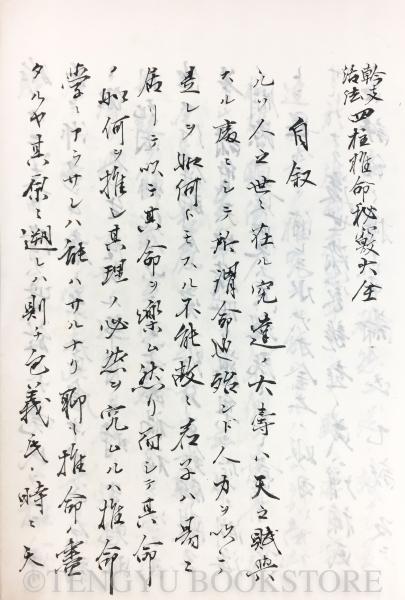 幹支
活法 四柱推命秘籔大全
自叙
凡ソ人之世ニ在ル究達ノ大壽ハ天之賦與
スル處ニシテ所謂命也殆ンド人力ヲ以ニ
是レヲ如何トモスル不能故ニ君子ハ易ニ
居リテ以テ其命ヲ樂ム然リ而シテ其命
ノ如何ヲ推シ其理ノ必然ヲ究ムルハ推命
學ニアラサレハ能ハサルナリ聊ニ推命書
タルヤ其原ニ遡レハ則チ包義氏ノ時ニ天
©TENGYU BOOKSTORE